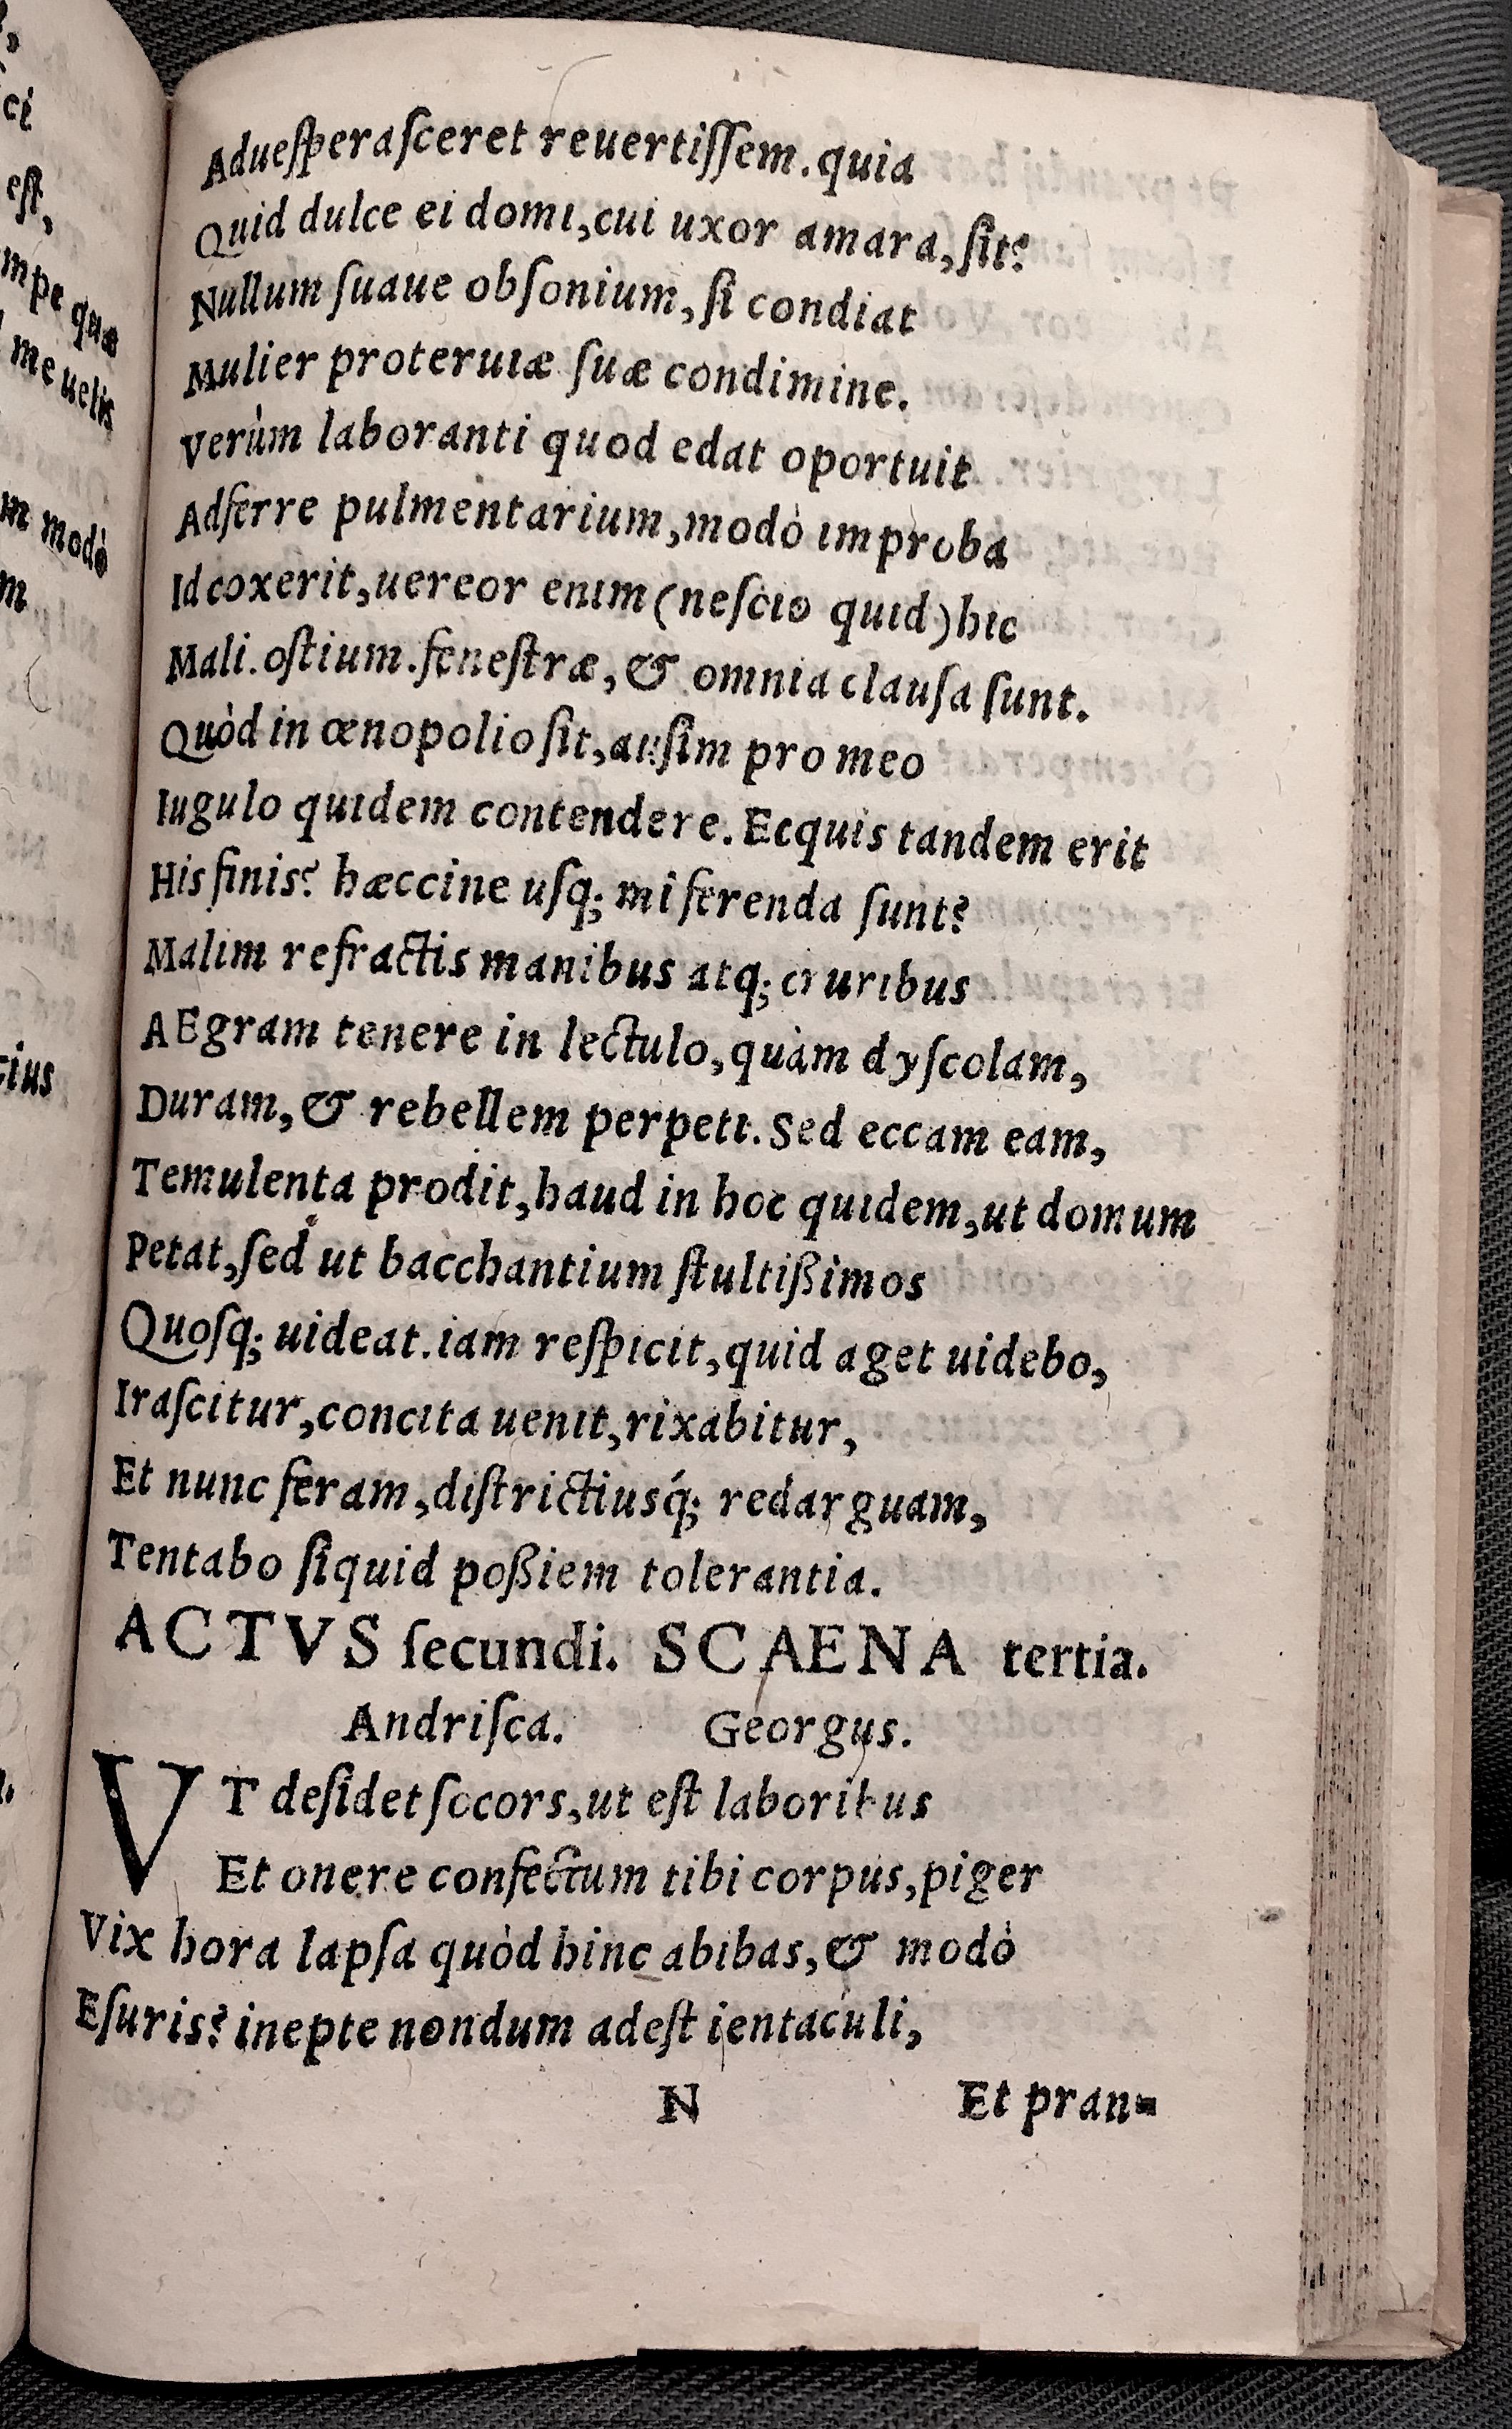 ci
est,
mpe quæ
me uelis
m modò
m
tius
Aduesperasceret reuertissem. quia
Quid dulce ei domi, cui uxor amara, sit?
Nullum suaue obsonium, si condiat
Mulier proteruiæ suæ condimine.
Verùm laboranti quod edat oportuit
Adferre pulmentarium, modò improba
Id coxerit, uereor enim (nescio quid) hic
Mali. ostium. fenestræ, & omnia clausa sunt.
Quòd in œnopolio sit, ausim pro meo
Iugulo quidem contendere. Ecquis tandem erit
His finis? hæccine usq; mi ferenda sunt?
Malim refractis manibus atq; cruribus
AEgram tenere in lectulo, quàm dyscolam,
Duram, & rebellem perpeti. Sed eccam eam,
Temulenta prodit, haud in hoc quidem, ut domum
Petat, sed ut bacchantium stultißimos
Quosq; uideat. iam respicit, quid aget uidebo,
Irascitur, concita uenit, rixabitur,
Et nunc feram, districtiusq́; redarguam,
Tentabo siquid poßiem tolerantia.
ACTVS secundi. SCAENA tertia.
Andrisca. Georgus.
VT desidet socors, ut est laboribus
Et onere confectum tibi corpus, piger
Vix hora lapsa quòd hinc abibas, & modò
Esuris? inepte nondum adest ientaculi,
N Et pran=